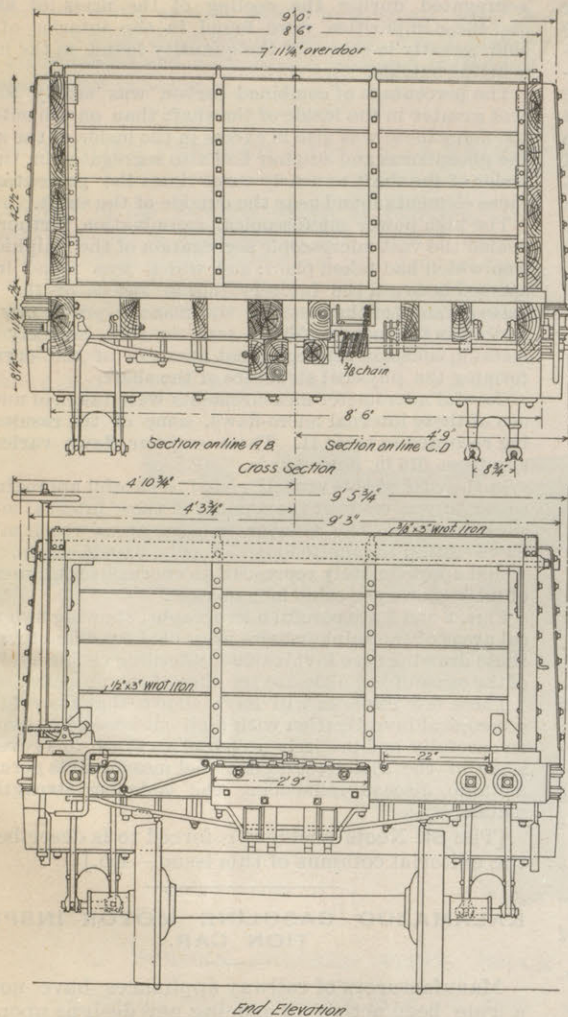 9' 0"
8' 6"
7' 11¼" overdoor
42½"
11½"
8¼"
3/8 chain
8' 6"
Section on line A.B.
Section on line C.D
4' 9"
Cross Section
8¾"
4' 10¾"
9' 5¾"
4' 3¾"
9' 3"
3/8" x 3" wrot. iron
1/2" x 3" wrot iron
22"
2' 9"
End Elevation